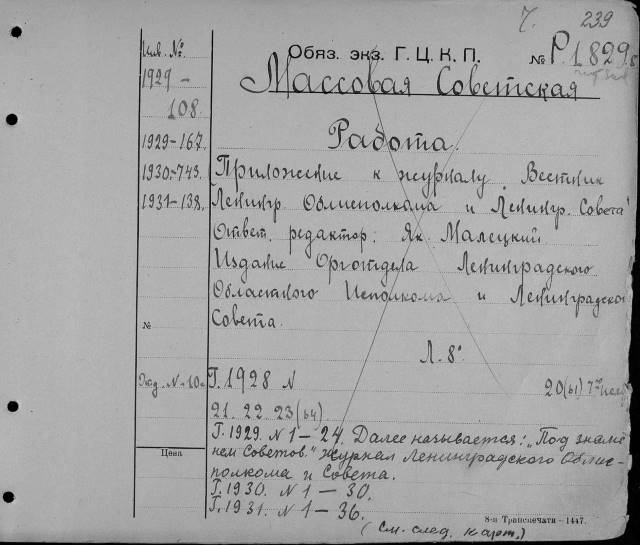 7. 239
Инв. №
Обяз. экз. Г. Ц. К. П. № Р1829
1929 –
108.
Массовая Советская
1929–167.
Работа.
1930–743.
Приложение к журналу „Вестник
1931–138.
Ленингр. Облисполкома и Ленингр. Совета"
Ответ. редактор: Як. Малецкий
Издание Орготдела Ленинградского
Областного Исполкома и Ленинградског
Совета.
№
Л. 8°
Г. 1928 N 20(61)
21. 22. 23(64)
Г. 1929. N 1 – 24. Далее называется: „Под знаме
нем Советов." Журнал Ленинградского Облис-
Цена
полкома и Совета.
Г. 1930. N 1 – 30.
Г. 1931. N 1 – 36.
8-я Транспечати – 1447.
(См. след. карт.)